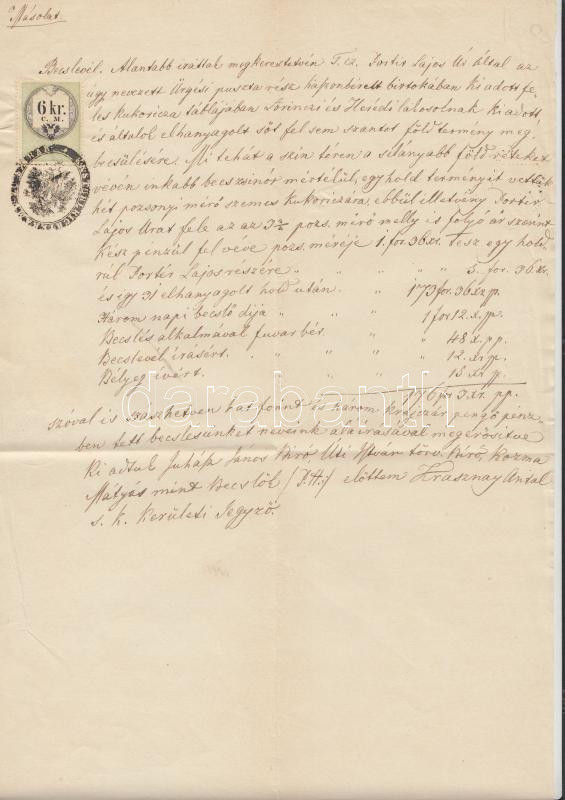 Másolat.
Becslevél. Alantabb irattak megkerestetvén T. cz. Fortir Lajos Úr által az
úgy nevezett Ürgési puszta rész haszonbérlett birtokában ki adott fe-
les kukoricza táblájában Lőrinczi és Herédi lakosoknak ki adott
és általok elhanyagolt sőt fel sem szántot föld termény meg
becsülésére. Mi tehát a szin téren a silányabb föld réteket
vévén inkább becszinór mértékül, egy hold terményit vettük
hét pozsonyi mérő szemes kukoriczára, ebbül illetvény Fortir
Lajos Urat fele az az 3 2/4 pozs. mérő melly is folyó ár szerint
kész pénzül fel véve pozs. méréje 1. for 36 xr. tesz egy hold
rúl Fortir Lajos részére " " " " " 5. for. 36 xr.
és igy 31 elhanyagolt hold után. " " 173 for. 36 xr. pp.
Három napi becslő dija " " " 1 for 12. x. pp.
Becslés alkalmával fuvar bér. " " " 48 x. pp.
Becslevél írásért. . " " " 12. xr. pp.
Bélyeg ívért. " " " 15 xr. pp.
176 for 3 xr. pp.
szóval is százhetven hat forint és három krajczár pengő pénz-
ben tett becslésünket neveink aláirásával megerősitve
ki adtuk Juhász János Biró Úti István törv. Biró, Kozma
Mátyás mint Becslök (P.H.) előttem Hrasznay Antal
s. k. kerületi Jegyző.
6 kr.
C. M.
darabanth